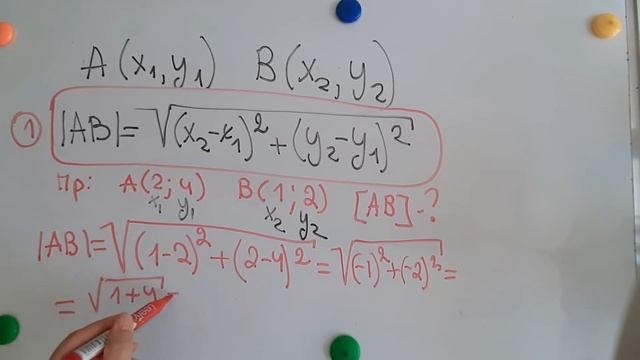 A(x₁, y₁) B(x₂, y₂)
① |AB| = √(x₂-x₁)² + (y₂-y₁)²
Пр: A(2; 4) B(1; 2) [AB] - ?
x₁ y₁ x₂ y₂
|AB| = √(1-2)² + (2-4)² = √(-1)² + (-2)² =
= √1+4 =